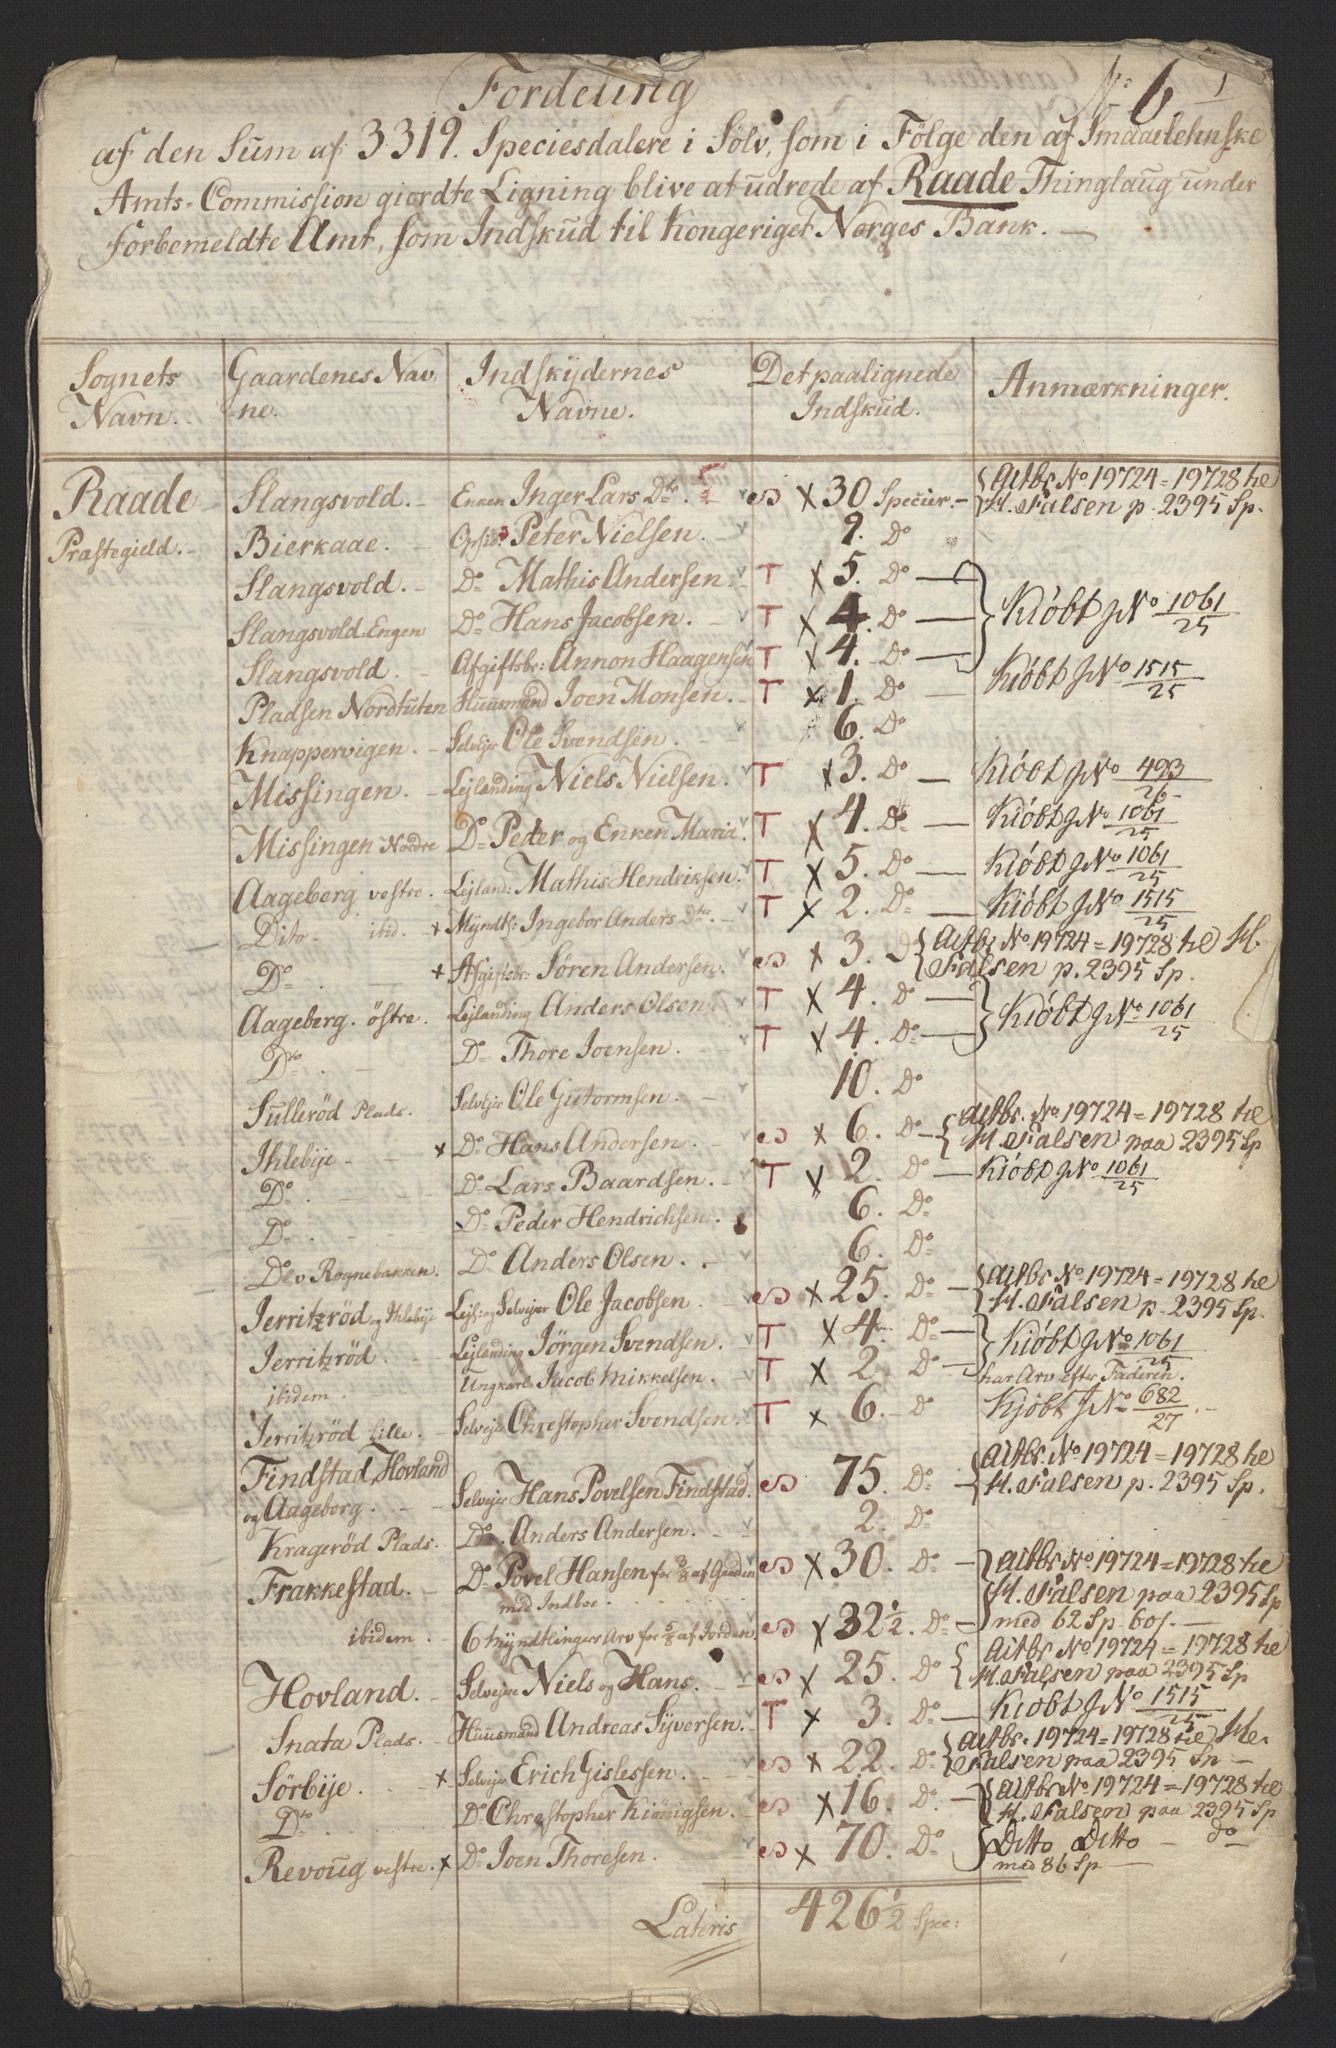 Fordeling
No 6 1
af den Sum af 3319. Speciesdalere i Sølv, som i Følge den af Smaalehnske
Amts-Commission giordte Ligning blive at udrede af Raade Thinglaug under
forbemeldte Amt, som Indskud til Kongeriget Norges Bank. —
Sognets Navn. Gaardenes Navne. Indskydernes Navne. Det paalignede Indskud. Anmærkninger.
Raade Præstegield. Slangsvold. Enken Inger Lars Dtr. S x 30 Specier. Aitbr No 19724 = 19728 he H. Falsen p. 2395 Sp.
Bierkaae. Opsid. Peter Nielsen. 9. Do
Slangsvold. Do Mathis Andersen. T x 5. Do
Slangsvold Engen Do Hans Jacobsen. T x 4. Do } Kiøbt J No 1061/25
Slangsvold. Afgiftsbr: Annon Haagensen T x 4. Do
Pladsen Nordtuten Huusmand Joen Monsen. T x 1. Do — Kiøbt J No 1515/25
Knappervigen. Selvejer Ole Svendsen. 6. Do
Missingen. Lejlænding Niels Nielsen. T x 3. Do — Kiøbt J No 493/26
Missingen Nordre Do Peder og Enken Maria. T x 4. Do — Kiøbt J No 1061/25
Aageberg vestre. Lejland: Mathis Hendriksen. T x 5. Do — Kiøbt J No 1061/25
Dito. ibid. x Myndtl: Ingebor Anders Dtr. T x 2. Do — Kiøbt J No 1515/25
Do. x Afgiftsbr: Søren Andersen. S x 3. Do { Aitbr No 19724 = 19728 he H. Falsen p. 2395 Sp.
Aageberg. østre. Lejlænding Anders Olsen T x 4. Do
Do. Do Thore Joensen. T x 4. Do } Kiøbt J No 1061/25
Sullerød Plads. Selvejer Ole Gutormsen. 10. Do
Ihlebije x Do Hans Andersen. S x 6. Do { Aitbr. No 19724 = 19728 he H. Falsen paa 2395 Sp
Do. Do Lars Baardsen. T x 2. Do — Kiøbt J No 1061/25
Do. Do Peder Hendrichsen. 6. Do
Do v Rognebakken. Do Anders Olsen. 6. Do
Jerritzrød og Ihlebije Lejl: og Selvejer Ole Jacobsen. S x 25. Do { Aitbr No 19724 = 19728 he H. Falsen p. 2395 Sp.
Jerritzrød. Lejlænding Jørgen Svendsen. T x 4. Do } Kiøbt J No 1061/25
ibidem. Ungkarl Jacob Mikkelsen. T x 2. Do har Arv efter Faderen.
Jerritzrød Lille. Selvejer Chrestopher Svendsen. T x 6. Do Kjøbt J No 682/27
Findstad Hovland og Aageborg. Selvejer Hans Povelsen Findstad. S 75. Do { Aitbr No 19724 = 19728 he H. Falsen p. 2395 Sp.
Kragerød Plads. Do. Anders Andersen. 2. Do
Frakkestad. Do Povel Hansen for 3/8 af Gaarden med Indboe. S x 30. Do { Aitbr No 19724 = 19728 he H. Falsen paa 2395 Sp
ibidem. 6 Myndtlingers Arv for 5/8 af Jorden. S x 32 1/2. Do med 62 Sp. 60/.
Hovland. Selvejere Niels og Hans. S x 25. Do { Aitbr No 19724 = 19728 he H. Falsen paa 2395 Sp
Snata Plads. Huusmand Andreas Syversen. T x 3. Do — Kiøbt J No 1515/25
Sörbije. x Selvejer Erich Gislessen. S x 22. Do { Aitbr. 19724 = 19728 he H. Falsen paa 2395 Sp —
Do. Do Chrestopher Kiönigsen. S x 16. Do { Aitbr No 19724 = 19728 he H. Falsen paa 2395 Sp
Revoug vestre. x Do Joen Thoresen. S x 70. Do } Ditto Ditto — do med 86 Sp —
Lateris 426 1/2 Spec: